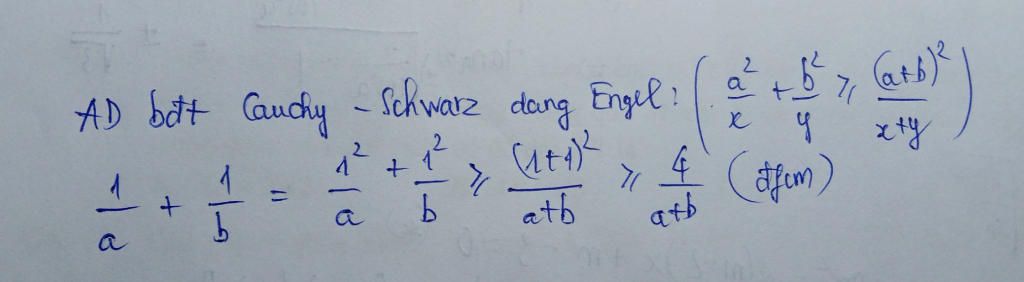 AD bđt Cauchy - Schwarz dạng Engel: ( a²/x + b²/y ≥ (a+b)²/(x+y) )
1/a + 1/b = 1²/a + 1²/b ≥ (1+1)²/(a+b) ≥ 4/(a+b) (đfcm)